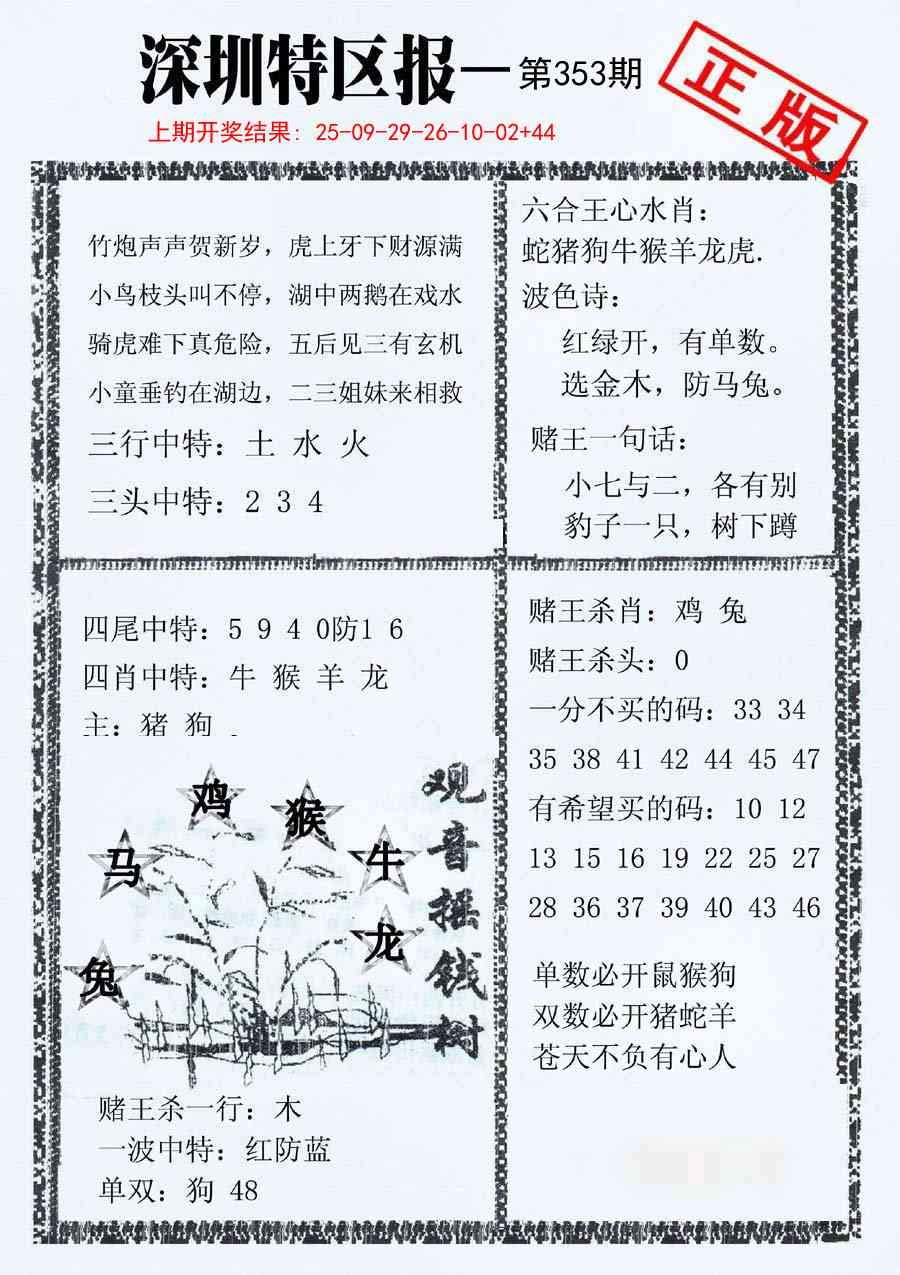 深圳特区报—第353期
正版
上期开奖结果: 25-09-29-26-10-02+44
竹炮声声贺新岁，虎上牙下财源满
小鸟枝头叫不停，湖中两鹅在戏水
骑虎难下真危险，五后见三有玄机
小童垂钓在湖边，二三姐妹来相救
三行中特: 土 水 火
三头中特:2 3 4
六合王心水肖:
蛇猪狗牛猴羊龙虎.
波色诗:
红绿开，有单数。
选金木，防马兔。
赌王一句话:
小七与二，各有别
豹子一只，树下蹲
四尾中特:5 9 4 0防1 6
四肖中特: 牛 猴 羊 龙
主: 猪 狗 .
鸡
猴
马
牛
龙
兔
观音摇钱树
赌王杀一行: 木
一波中特:红防蓝
单双: 狗 48
赌王杀肖: 鸡 兔
赌王杀头:0
一分不买的码:33 34
35 38 41 42 44 45 47
有希望买的码:10 12
13 15 16 19 22 25 27
28 36 37 39 40 43 46
单数必开鼠猴狗
双数必开猪蛇羊
苍天不负有心人